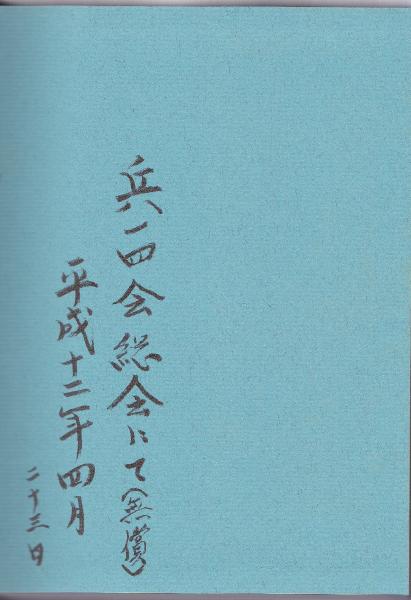 兵一四会総会にて(無償)
平成十二年四月
二十三日